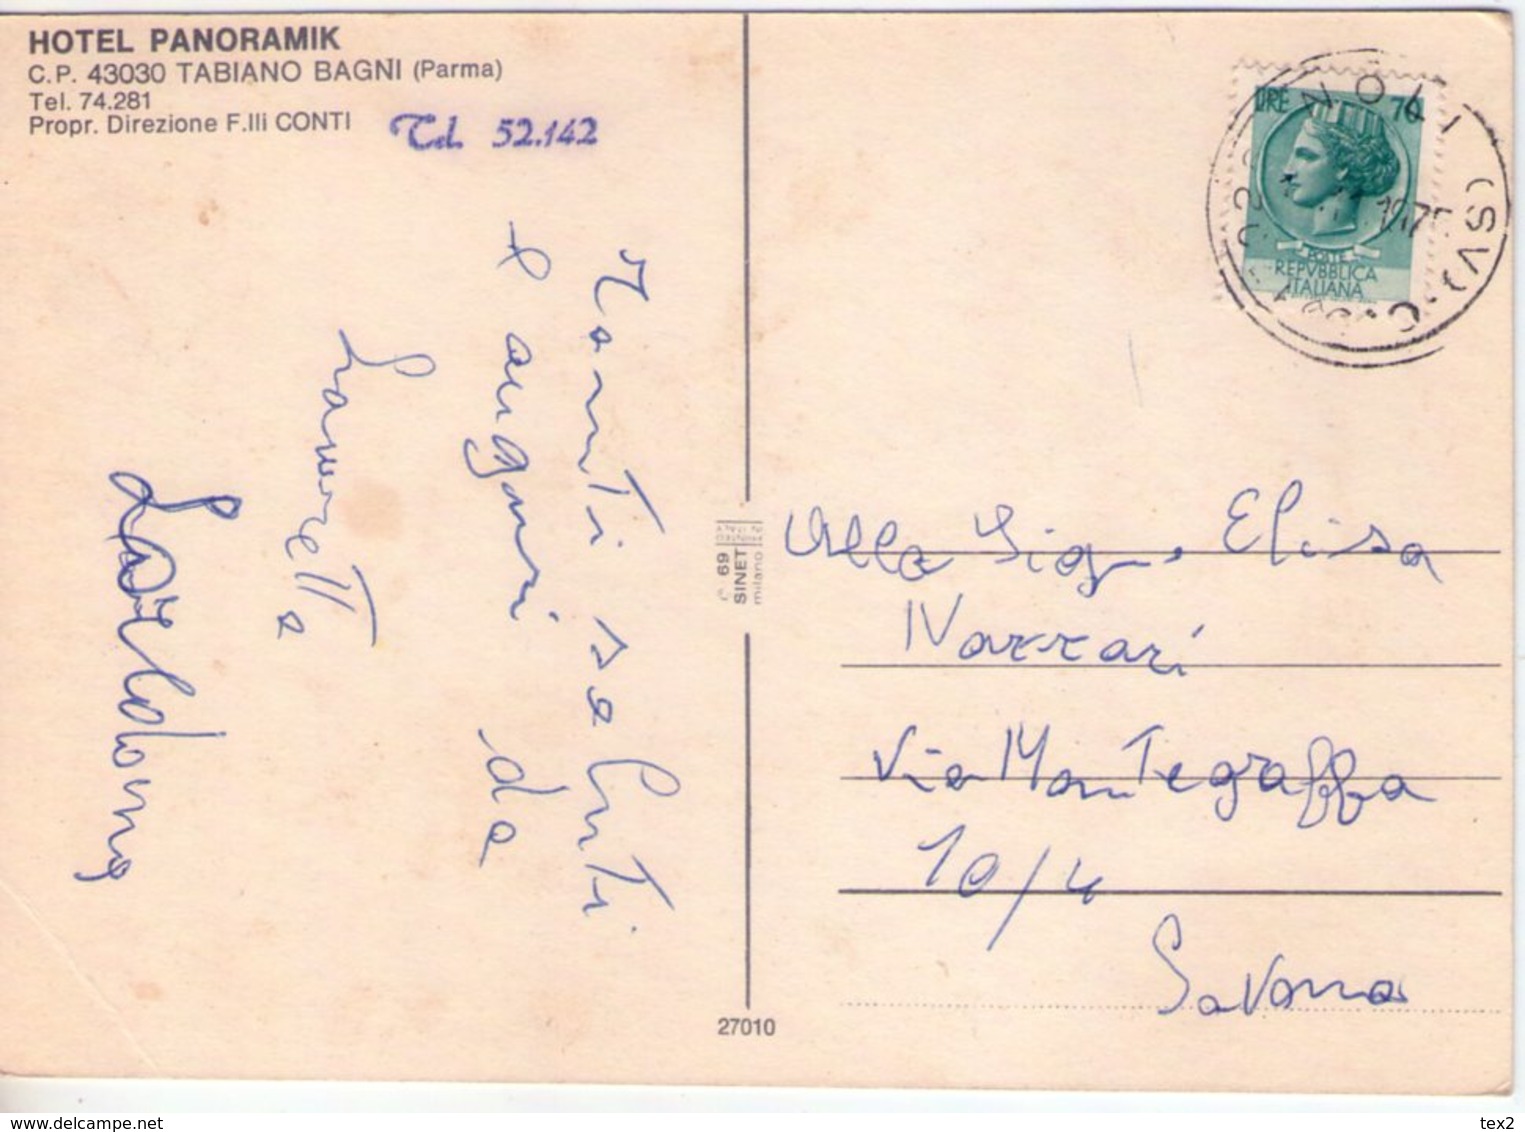 HOTEL PANORAMIK
C.P. 43030 TABIANO BAGNI (Parma)
Tel. 74.281
Propr. Direzione F.lli CONTI
Tel. 52.142
Tanti saluti
e auguri da
Lauretta
Loreldana
C 69
SINET
milano
27010
LIRE 70
POSTE
REPVBBLICA
ITALIANA
NOLI (SV)
1975
Alla Sig. Elisa
Nazzari
Via Montegraffa
10/4
Savona
www.delcampe.net
tex2